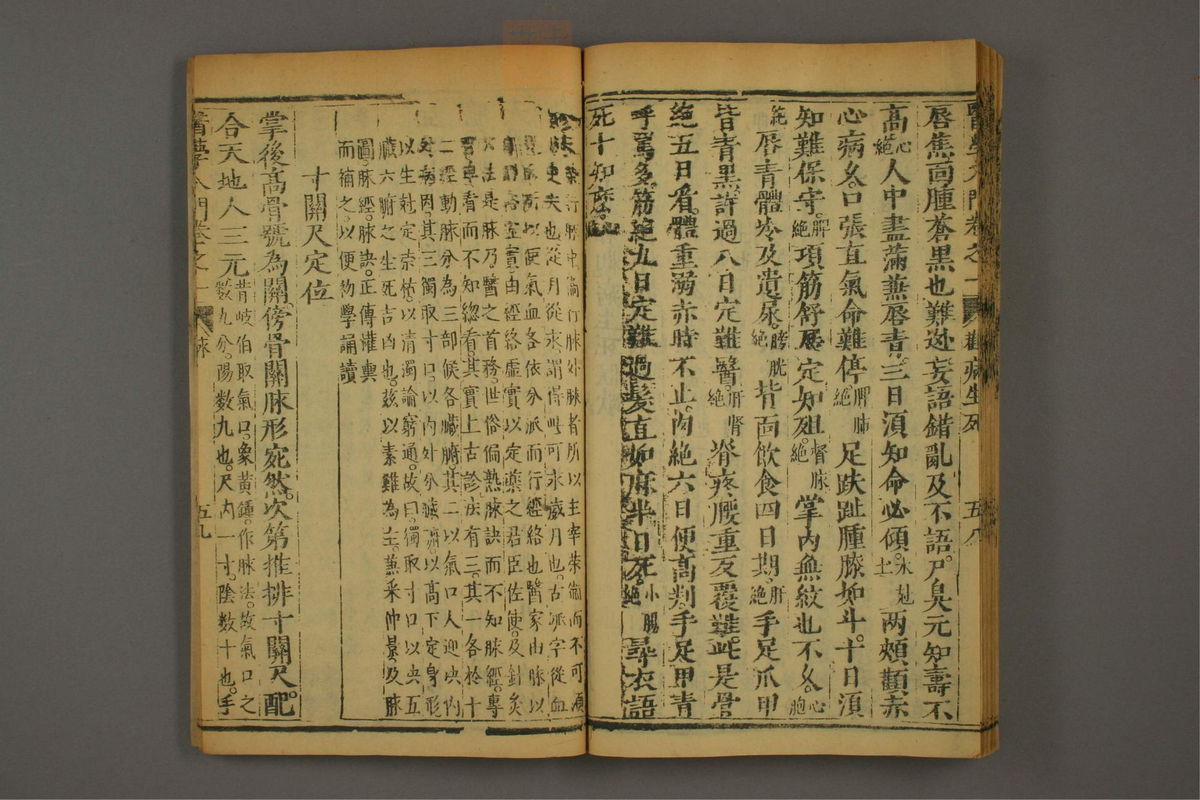 醫學入門卷之一 觀病生死 五八
唇焦面腫蒼黑也難逃妄語錯亂及不語尸臭元知壽不
高心絕人中盡滿兼唇青三日須知命必傾木尅土兩頰顴赤
心病久口張直氣命難停脾肺絕足趺趾腫膝如斗十日須
知難保守脾絕項筋舒展定知殂督脉絕掌內無紋也不久心胞
絕唇青體冷及遺尿膀胱絕背面飲食四日期肝絕手足爪甲
皆青黑許過八日定難醫肝腎絕脊疼腰重反覆難此是骨
絕五日看體重溺赤時不止肉絕六日便高判手足甲青
呼罵多筋絕九日定難過髮直如麻半日死小腸絕尋衣語
死十知麼
榮行脉中衛行脉外脉者所以主宰榮衛而不可須
失也從月從永謂得此可永歲月也古脈字從血
以便氣血各依分派而行經絡也醫家由脉以
由經絡虛實以定藥之君臣佐使及針灸
法是脉乃醫之首務世俗偏熟脉訣而不知脉經專
看而不知總看其實上古診法有三其一各於十
二經動脉分為三部候各臟腑其二以氣口人迎决內
病因其三獨取寸口以內外分臟腑以高下定身形
以生尅定榮枯以清濁論窮通故曰獨取寸口以决五
臟六腑之生死吉凶也兹以素難為主兼采仲景及脉
圖脉經脉訣正傳權輿
而補之以便初學誦讀
寸關尺定位
掌後高骨號為關傍骨關脉形宛然次第推排寸關尺配
合天地人三元昔岐伯取氣口象黃鍾作脉法故氣口之
數九分陽數九也尺內一寸陰數十也手
醫學入門卷之一 脉 五九